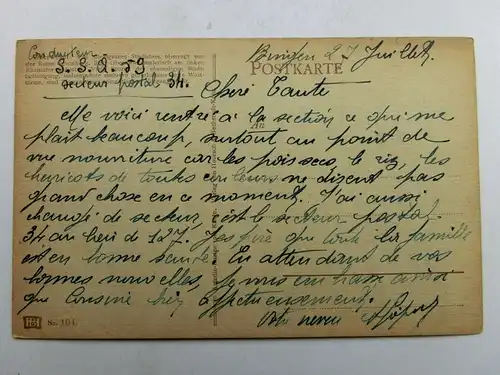 Conducteur
S. S. Q. 59
secteur postal 34.
Bingen 27 Juillet
POSTKARTE
Chère Tante
Me voici rentré à la section ce qui me
plait beaucoup, surtout au point de
vue nourriture car les pois secs, le riz, les
haricots de toutes couleurs ne disent pas
grand chose en ce moment. J'ai aussi
changé de secteur, c'est le secteur postal
34 au lieu de 127. J'espère que toute la famille
est en bonne santé. En attendant de vos
bonnes nouvelles, je vous embrasse ainsi
que Cousine bien affectueusement.
Votre neveu
Nr. 101